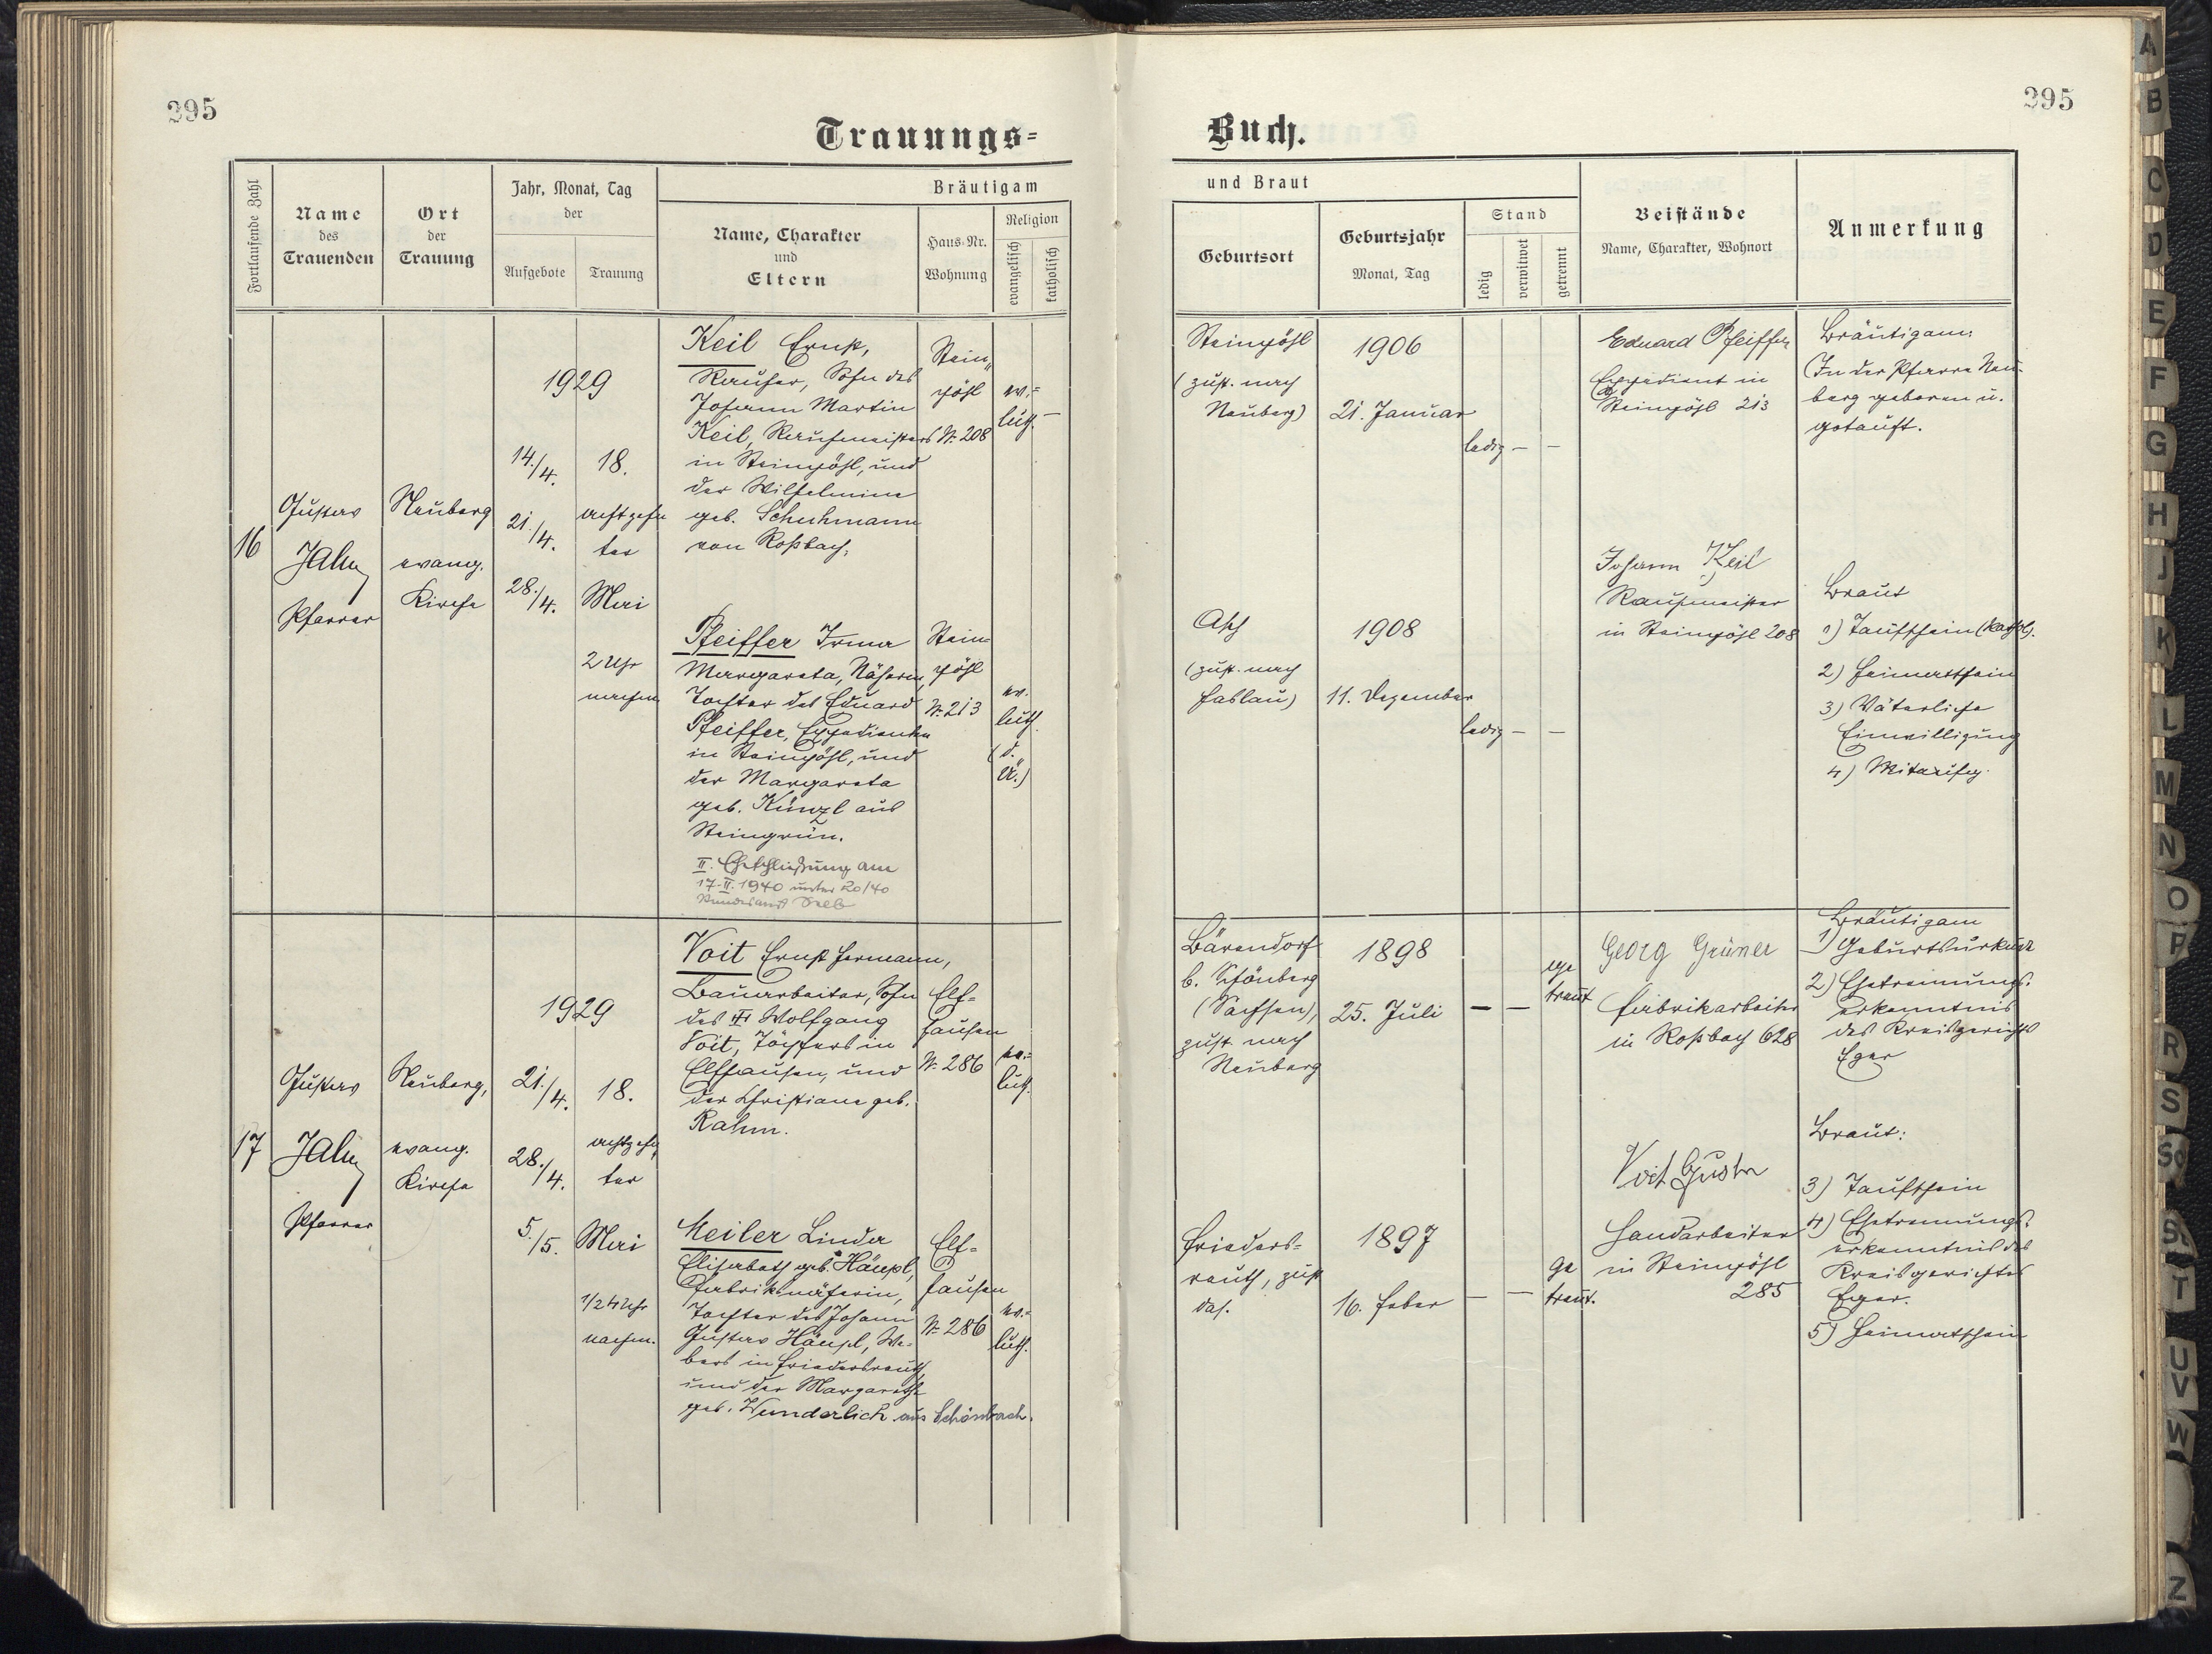 295
295
Trauungs-
Buch.
Fortlaufende Zahl
Name
des
Trauenden
Ort
der
Trauung
Jahr, Monat, Tag
der
Aufgebote
Trauung
Bräutigam
Name, Charakter
und
Eltern
Haus-Nr.
Wohnung
Religion
evangelisch
katholisch
und Braut
Geburtsort
Geburtsjahr
Monat, Tag
Stand
ledig
verwitwet
getrennt
Beistände
Name, Charakter, Wohnort
Anmerkung
16
Gustav
Jahn
Pfarrer
Neuberg
evang.
Kirche
1929
14./4.
21./4.
28./4.
18.
achtzehn
ter
Mai
2 Uhr
nachm.
Keil Ernst,
Sohn des
Johann Martin
Keil,
in Steinpöhl, und
der Wilhelmine
geb. Schuhmann
von Roßbach.
Stein-
pöhl
N. 208
ev.-
luth.
—
Steinpöhl
(zust. nach
Neuberg)
1906
21. Januar
ledig — —
Eduard Pfeiffer
Expedient in
Steinpöhl 213
Bräutigam:
In der Pfarre Neu-
berg geboren u.
getauft.
Pfeiffer Irma
Margareta, Näherin,
Tochter des Eduard
Pfeiffer, Expedienten
in Steinpöhl, und
der Margareta
geb. Künzl aus
Steingrün.
II. Eheschließung am
17.II.1940 unter 20/40
Standesamt Selb
Stein-
pöhl
N. 213
ev.
luth.
(d.
Ü.)
Asch
(zust. nach
Haslau)
1908
11. Dezember
ledig — —
Johann Keil
in Steinpöhl 208
Braut
1) Taufschein (kathol).
2) Heimatschein
3) Väterliche
Einwilligung
4)
17
Gustav
Jahn
Pfarrer
Neuberg,
evang.
Kirche
1929
21./4.
28./4.
5./5.
18.
achtzehn
ter
Mai
1/2 4 Uhr
nachm.
Voit Ernst Hermann,
Bauarbeiter, Sohn
des Wolfgang
Voit, Töpfers in
Elfhausen, und
der Christiane geb.
Rahm.
Elf-
hausen
N. 286
ev.-
luth.
Bärendorf
b. Schönberg
(Sachsen),
zust. nach
Neuberg
1898
25. Juli
— —
ge
trent
Georg Grüner
Fabrikarbeiter
in Roßbach 628
Bräutigam
1) Geburtsurkunde
2) Ehetrennungs-
erkenntnis
des Kreisgerichts
Eger
Meiler Linda
Elisabeth geb. Häupl,
Fabriksnäherin,
Tochter des Johann
Gustav Häupl, We-
bers in Friedersreuth
und der Margarethe
geb. Wunderlich aus Schönbach.
Elf-
hausen
N. 286
ev.-
luth.
Frieders-
reuth, zust
das.
1897
16. Feber
— —
ge
trent.
Voit Gustav
Handarbeiter
in Steinpöhl
285
Braut:
3) Taufschein
4) Ehetrennungs-
erkenntnis des
Kreisgerichtes
Eger.
5) Heimatschein
A
B
C
D
E
F
G
H
J
K
L
M
N
O
P
R
S
Sc
St
T
U
V
W
Z